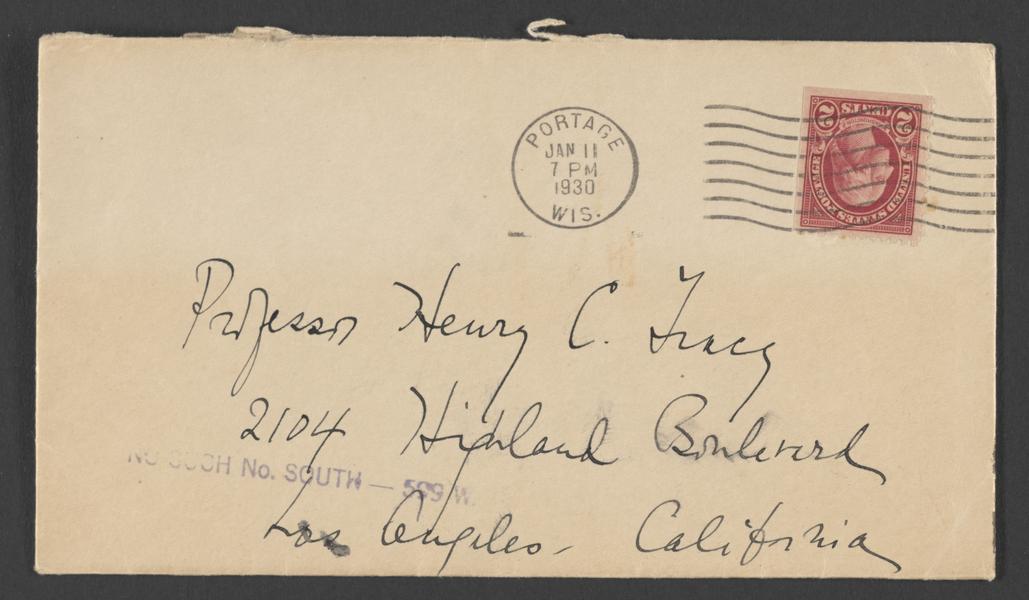 PORTAGE
JAN 11
7 PM
1930
WIS.
2 CENTS 2
UNITED STATES POSTAGE
Professor Henry C. Tracy
2104 Highland Boulevard
NO SUCH No. SOUTH — 599 W.
Los Angeles - California